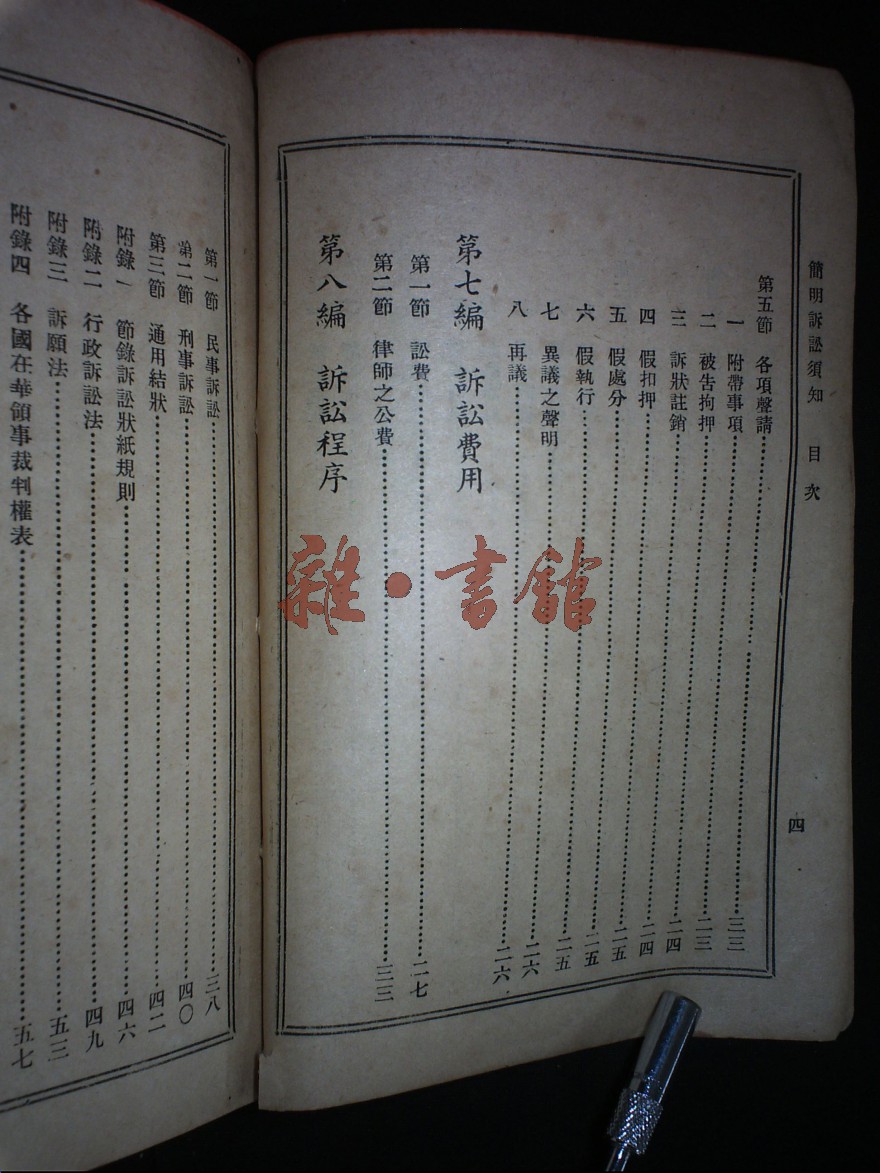 簡明訴訟須知 目次 四
第五節 各項聲請……二三
一 附帶事項……二三
二 被告拘押……二四
三 訴狀註銷……二四
四 假扣押……二五
五 假處分……二五
六 假執行……二五
七 異議之聲明……二六
八 再議……二六
第七編 訴訟費用
第一節 訟費……二七
第二節 律師之公費……三三
第八編 訴訟程序
第一節 民事訴訟……三八
第二節 刑事訴訟……四〇
第三節 通用結狀……四二
附錄一 節錄訴訟狀紙規則……四六
附錄二 行政訴訟法……四九
附錄三 訴願法……五三
附錄四 各國在華領事裁判權表……五七
雜·書館